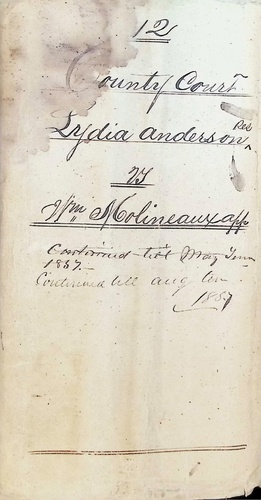 12
County Court
Lydia Anderson Res
vs
Wm Molineaux app
Continued till May Term
1857.
Continued till aug
1857